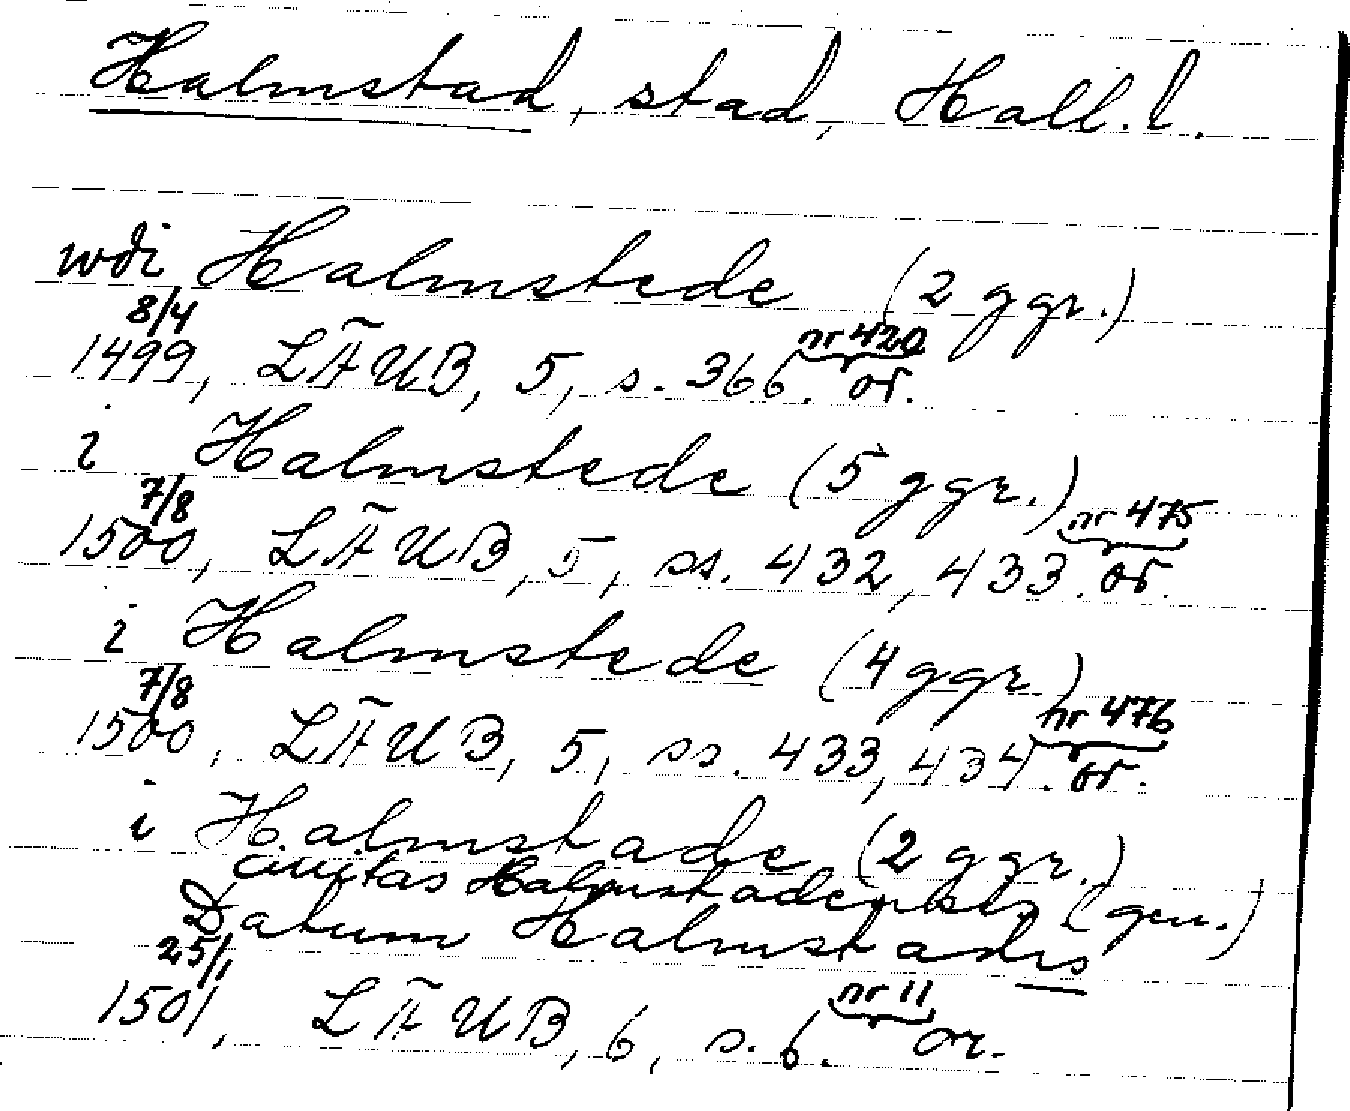 Halmstad, stad, Hall. l.
wdi Halmstede (2 ggr.)
8/4 nr 420
1499, LÄUB, 5, s. 366. or.
i Halmstede (5 ggr.)
7/8 nr 475
1500, LÄUB, 5, ss. 432, 433. or.
i Halmstede (4 ggr.)
7/8 nr 476
1500, LÄUB, 5, ss. 433, 434. or.
i Halmstade (2 ggr.)
ciuitas Halmstadensis (gen.)
Datum Halmstadis
25/1 nr 11
1501, LÄUB, 6, s. 6. or.